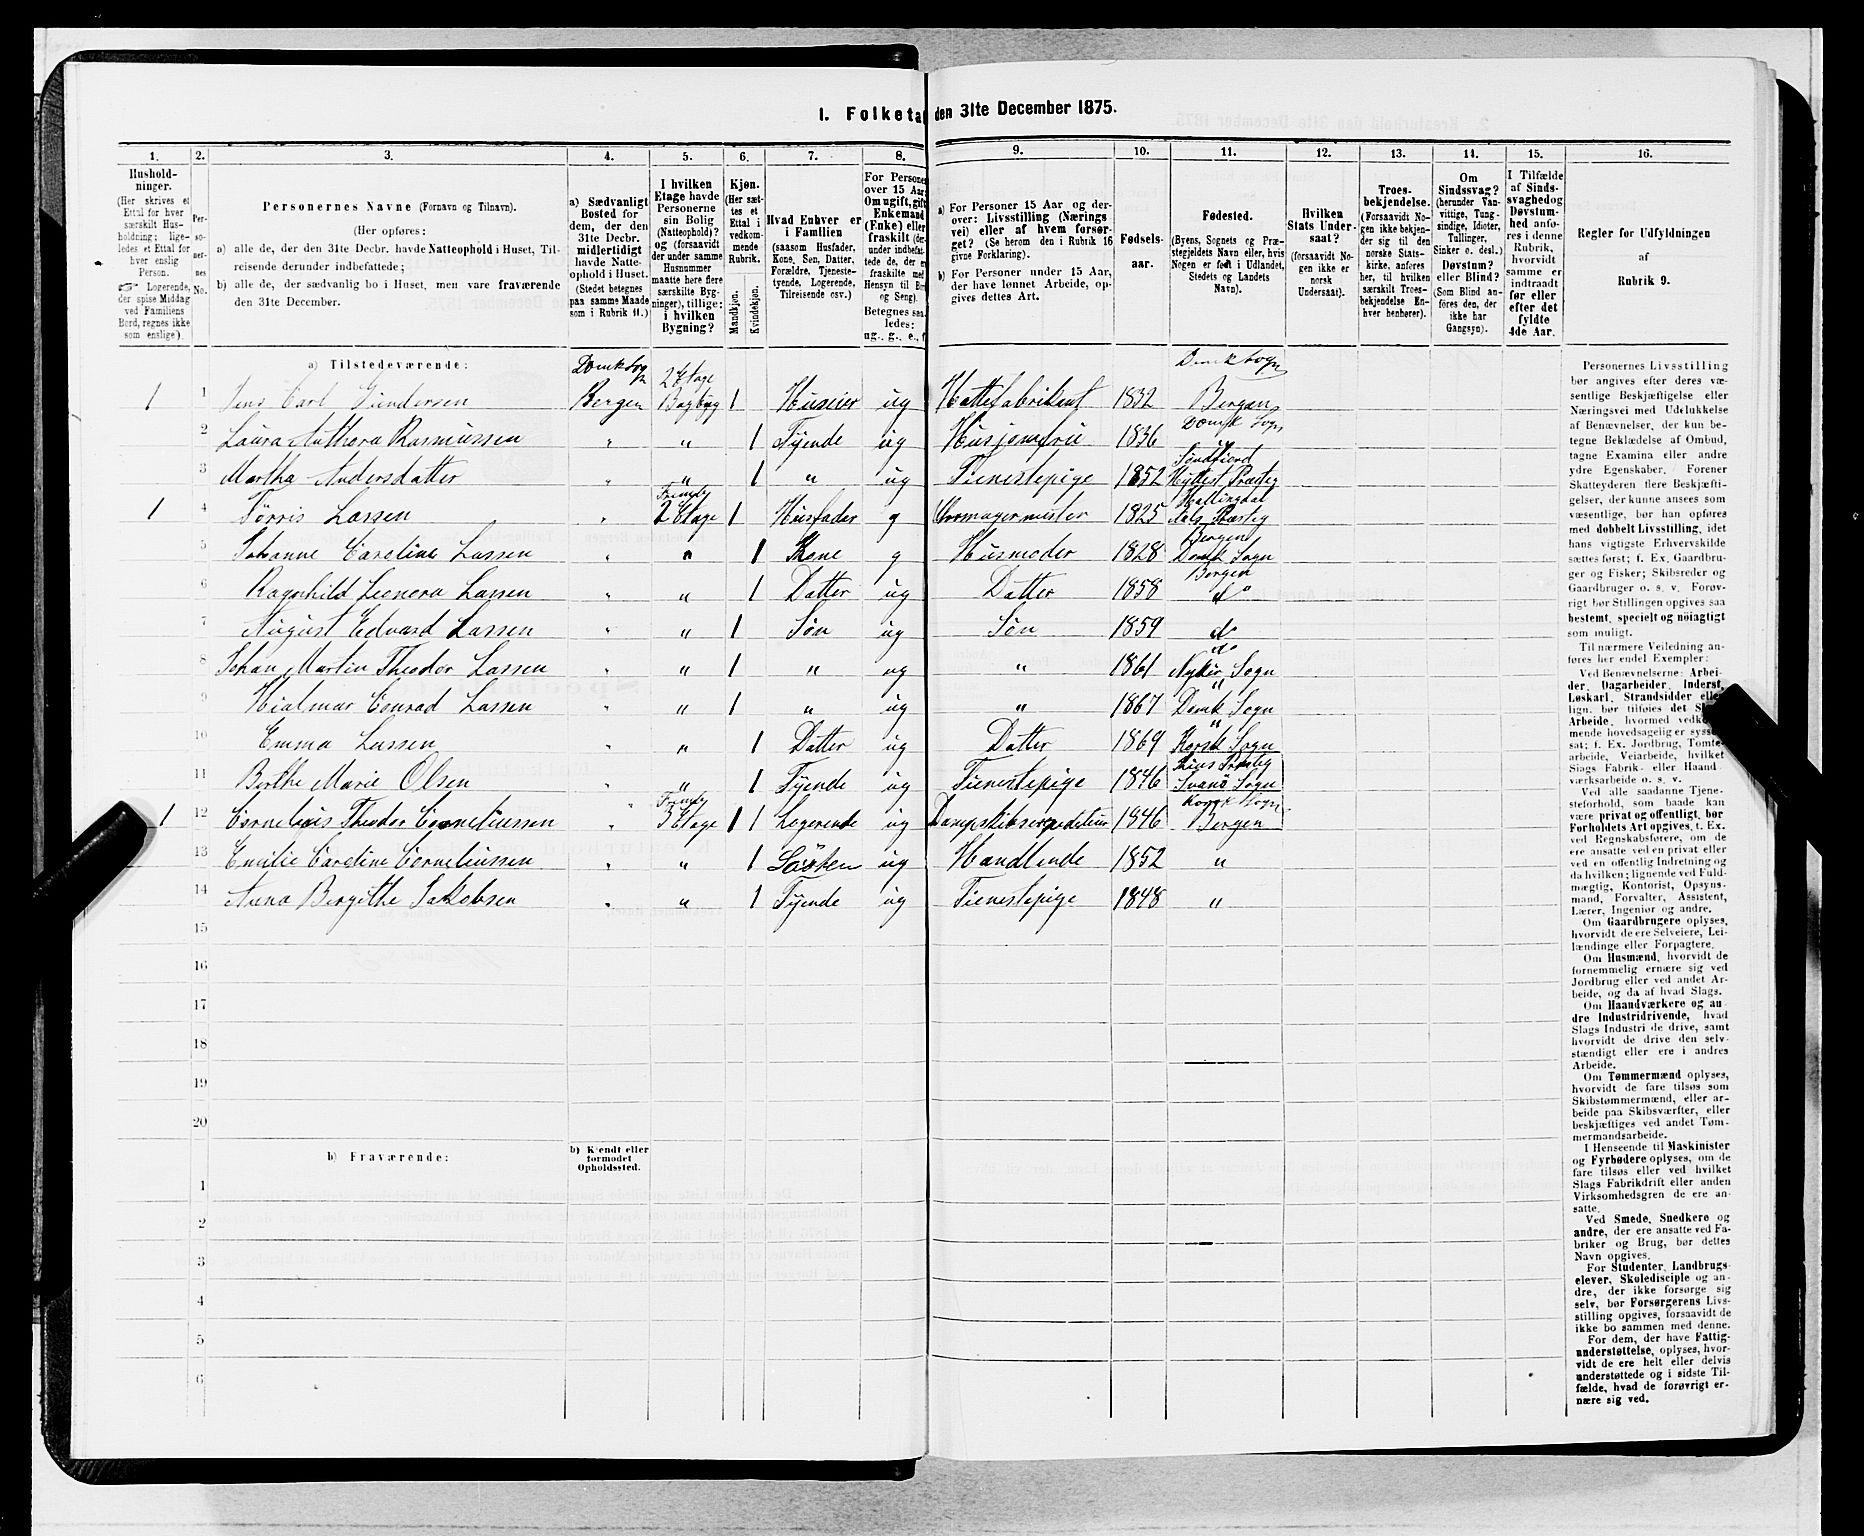 1. Folketæ den 31te December 1875.
1. 2. 3. 4. 5. 6. 7. 8. 9. 10. 11. 12. 13. 14. 15. 16.
Hushold-
ninger.
(Her skrives et
Ettal for hver
særskilt Hus-
holdning; lige-
ledes et Ettal for
hver enslig
Person.
Logerende,
der spise Middag
ved Familiens
Bord, regnes ikke
som enslige).
Per-
so-
ner-
nes
No.
Personernes Navne (Fornavn og Tilnavn).
(Her opføres:
a) alle de, der den 31te Decbr. havde Natteophold i Huset, Til-
reisende derunder indbefattede;
b) alle de, der sædvanlig bo i Huset, men vare fraværende
den 31te December.
a) Sædvanligt
Bosted for
dem, der den
31te Decbr.
midlertidigt
havde Natte-
ophold i Huset.
(Stedet betegnes
paa samme Maade
som i Rubrik 11.)
I hvilken
Etage havde
Personerne
sin Bolig
(Natteophold)?
og (forsaavidt
der under samme
Husnummer
maatte høre flere
særskilte Byg-
ninger), tillige:
i hvilken
Bygning?
Kjøn.
(Her sæt-
tes et
Ettal i
vedkom-
mende
Rubrik.
Mandkjøn.
Kvindekjøn.
Hvad Enhver er
i Familien
(saasom Husfader,
Kone, Søn, Datter,
Forældre, Tjeneste-
tyende, Logerende,
Tilreisende osv.)
For Persone
over 15 Aar
Om ugift, gift
Enkemand
(Enke) eller
fraskilt (der-
under indbefat-
tede de, der er
fraskilte med
Hensyn til Bo
og Seng).
Betegnes saa-
ledes:
ug., g., e., f
a) For Personer 15 Aar og der-
over: Livsstilling (Nærings
vei) eller af hvem forsør-
get? (Se herom den i Rubrik 16
givne Forklaring).
b) For Personer under 15 Aar,
der have lønnet Arbeide, op-
gives dettes Art.
Fødsels-
aar.
Fødested.
(Byens, Sognets og Præ-
stegjeldets Navn, eller, hvis
Nogen er født i Udlandet,
Stedets og Landets
Navn).
Hvilken
Stats Under-
saat?
(forsaavidt No-
gen ikke er
norsk
Undersaat).
Troes-
bekjendelse.
(Forsaavidt No-
gen ikke bekjen-
der sig til den
norske Stats-
kirke, anføres
her, til hvilken
særskilt Troes-
bekjendelse En-
hver henhører).
Om
Sindssvag?
(herunder Van-
vittige, Tung-
sindige, Idioter,
Tullinger,
Sinker o. desl.)
Døvstum?
eller Blind?
(Som Blind an-
føres den, der
ikke har
Gangsyn).
I Tilfælde
af Sinds-
svaghed og
Døvstum-
hed anfø-
res i denne
Rubrik,
hvorvidt
samme er
indtraadt
før eller
efter det
fyldte
4de Aar.
Regler for Udfyldningen
af
Rubrik 9.
a) Tilstedeværende: Domk Sogn 2 Etage Domk Sogn
1 1 Jens Carl Gundersen Bergen Bagbyg 1 Huseier ug Hattefabrikant 1832 Bergen
2 Laura Anthora Rasmussen " " 1 Tyende ug Husjomfru 1836 Domk Sogn
3 Martha Andersdatter " " 1 " ug Tienestepige 1852 Søndfjord
1 4 Tørris Lassen " 2 Etage 1 Husfader g 1825 Hallingdal Aals Præsteg
5 Johanne Caroline Lassen " " 1 Kone g Husmoder 1828 Bergen Domk Sogn
6 Ragnhild Leonora Lassen " " 1 Datter ug Datter 1858 Bergen do
7 August Edvard Lassen " " 1 Søn ug Søn 1859 do
8 Johan Martin Theodor Lassen " " 1 " ug " 1861 do Nykir Sogn
9 Hialmar Conrad Lassen " " 1 " ug " 1867 " Domk Sogn
10 Emma Lassen " " 1 Datter ug Datter 1869 " Korsk Sogn
11 Berthe Marie Olsen " " 1 Tyende ug Tienestepige 1846 Svanø Sogn
1 12 Cornelius Theodor Corneliussen " 3 Etage 1 1 Logerende ug Dampskibsexpediteur 1846 Korsk Sogn Bergen
13 Emilie Caroline Corneliussen " " 1 Søster ug Handlende 1852 "
14 Anna Birgithe Jakobsen " " 1 Tyende ug Tienestepige 1848 "
15
16
17
18
19
20
b) Fraværende: b) Kjendt eller
formodet
Opholdssted.
1
2
3
4
5
6
Personernes Livsstilling
bør angives efter deres væ-
sentlige Beskjæftigelse eller
Næringsvei med Udelukkelse
af Benævnelser, der kun be-
tegne Beklædelse af Ombud,
tagne Examina eller andre
ydre Egenskaber. Forener
Skatteyderen flere Beskjæfti-
gelser, der kunne ansees som
væsentlige, bør han opføres
med dobbelt Livsstilling, idet
hans vigtigste Erhvervskilde
sættes først; f. Ex. Gaardbru-
ger og Fisker; Skibsreder og
Gaardbruger o. s. v. Forøv-
rigt bør Stillingen opgives saa
bestemt, specielt og nöiagtigt
som muligt.
Til nærmere Veiledning an-
føres her endel Exempler:
Ved Benævnelserne: Arbei-
der, Dagarbeider, Inderst,
Løskarl, Strandsidder eller
lign. bør tilføies det Sl
Arbeide, hvormed vedko
mende hovedsagelig er syss
sat; f. Ex. Jordbrug, Tomte-
arbeide, Veiarbeide, hvilket
Slags Fabrik- eller Haand
værksarbeide o. s. v.
Ved alle saadanne Tjene-
steforhold, som baade kan
være privat og offentligt, bør
Forholdets Art opgives, t. Ex.
ved Regnskabsførere, om de
ere ansatte ved en privat eller
ved en offentlig Indretning og
da hvilken; lignende ved Fuld-
mægtig, Kontorist, Opsyns-
mand, Forvalter, Assistent,
Lærer, Ingeniør og andre.
Om Gaardbrugere oplyses,
hvorvidt de ere Selveiere, Lei-
lændinge eller Forpagtere.
Om Husmænd, hvorvidt de
fornemmelig ernære sig ved
Jordbrug eller ved andet Ar-
beide, og da af hvad Slags.
Om Haandværkere og an
dre Industridrivende, hvad
Slags Industri de drive, samt
hvorvidt de drive den selv-
stændigt eller ere i andres
Arbeide.
Om Tømmermænd oplyses,
hvorvidt de fare tilsøs som
Skibstømmermænd, eller ar-
beide paa Skibsværfter, eller
beskjæftiges ved andet Tøm-
mermandsarbeide.
I Henseende til Maskinister
og Fyrbødere oplyses, om de
fare tilsøs eller ved hvilket
Slags Fabrikdrift eller anden
Virksomhedsgren de ere an-
satte.
Ved Smede, Snedkere og
andre, der ere ansatte ved Fa-
briker og Brug, bør dettes
Navn opgives.
For Studenter, Landbrugs-
elever, Skoledisciple og an-
dre, der ikke forsørge sig
selv, bør Forsørgerens Livs-
stilling opgives, forsaavidt de
ikke bo sammen med denne.
For dem, der have Fattig-
understøttelse, oplyses, hvor-
vidt de ere helt eller delvis
understøttede og i sidste Til-
fælde, hvad de forøvrigt er-
nære sig ved.